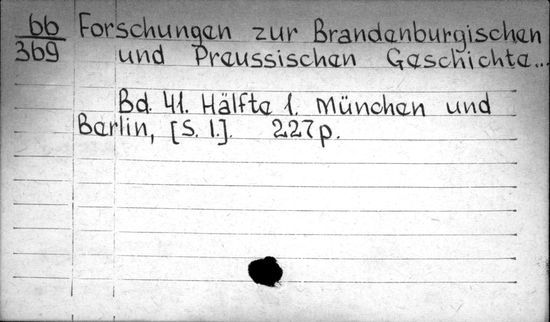 bb Forschungen zur Brandenburgischen
369 und Preussischen Geschichte...
Bd. 41. Hälfte 1. München und
Berlin, [S. l.]. 227 p.